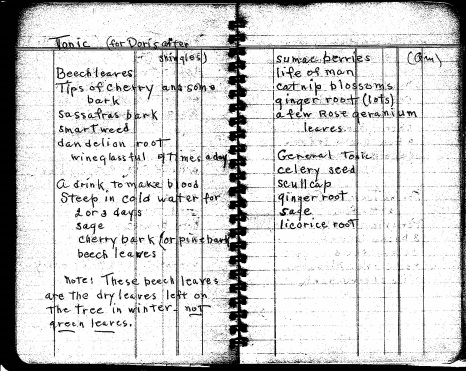 Tonic (for Doris after
shingles)
Beech leaves
Tips of cherry and some
bark
sassafras bark
smartweed
dandelion root
wineglassful 4 times a day
A drink to make blood
Steep in cold water for
2 or 3 days
sage
cherry bark (or pine bark
beech leaves
Note: These beech leaves
are the dry leaves left on
the tree in winter. not
green leaves.
sumac berries
life of man
catnip blossoms
ginger root (lots)
a few Rose geranium
leaves
General Tonic
celery seed
scullcap
ginger root
sage
licorice root